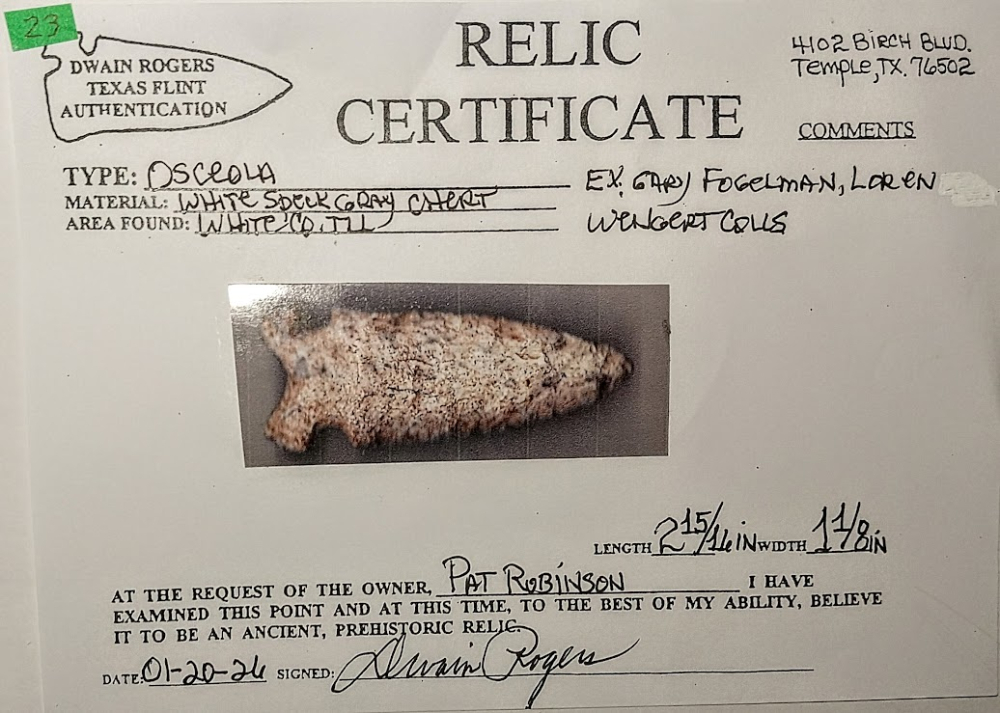 23
DWAIN ROGERS
TEXAS FLINT
AUTHENTICATION
RELIC
CERTIFICATE
4102 BIRCH BLVD.
TEMPLE, TX. 76502
COMMENTS
TYPE: OSCEOLA
MATERIAL: WHITE SPECK GRAY CHERT
AREA FOUND: WHITE CO, ILL
EX. GARY FOGELMAN, LOREN
WENGERT COLLS
LENGTH 2 15/16 IN WIDTH 1 1/8 IN
AT THE REQUEST OF THE OWNER, PAT ROBINSON I HAVE
EXAMINED THIS POINT AND AT THIS TIME, TO THE BEST OF MY ABILITY, BELIEVE
IT TO BE AN ANCIENT, PREHISTORIC RELIC.
DATE: 01-20-26 SIGNED: Dwain Rogers